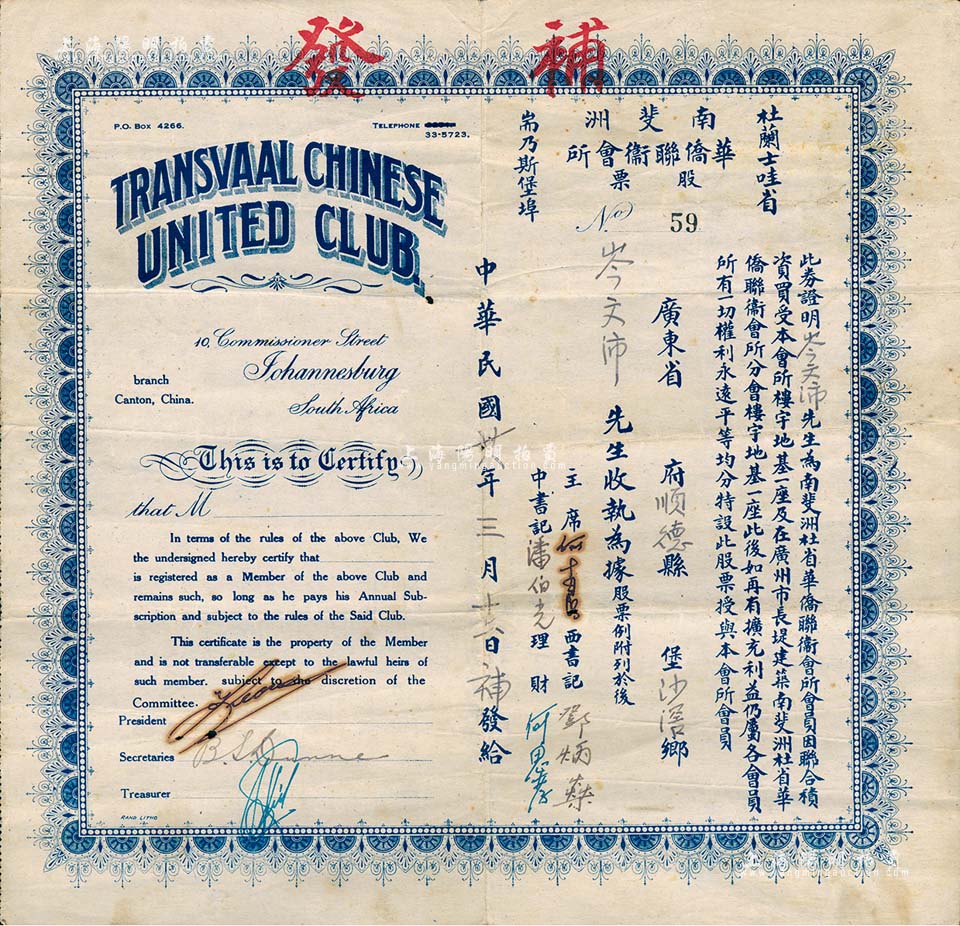 補發
P.O. Box 4266.
TELEPHONE
33-5723.
TRANSVAAL CHINESE
UNITED CLUB.
10, Commissioner Street
Johannesburg
South Africa
branch
Canton, China.
This is to Certify
that M
In terms of the rules of the above Club, We
the undersigned hereby certify that
is registered as a Member of the above Club and
remains such, so long as he pays his Annual Sub-
scription and subject to the rules of the Said Club.
This certificate is the property of the Member
and is not transferable except to the lawful heirs of
such member. subject to the discretion of the
Committee.
President
Secretaries
Treasurer
RAND LITHO
杜蘭士哇省
南斐洲
華僑聯衞會所
股票
耑乃斯堡埠
No 59
此券證明岑文沛先生為南斐洲杜省華僑聯衞會所會員因聯合積
資買受本會所樓宇地基一座及在廣州市長堤建築南斐洲杜省華
僑聯衞會所分會樓宇地基一座此後如再有擴充利益仍屬各會員
所有一切權利永遠平等均分特設此股票授與本會所會員
廣東省 府順德縣 堡沙滘鄉
岑文沛 先生收執為據股票例附列於後
主席 西書記 鄧炳燊
中書記 潘伯光 理財
中華民國卅八年三月十六日補發給
上海陽明拍賣
www.yangmingauction.com
上海陽明拍賣
www.yangmingauction.com
上海陽明拍賣
www.yangmingauction.com